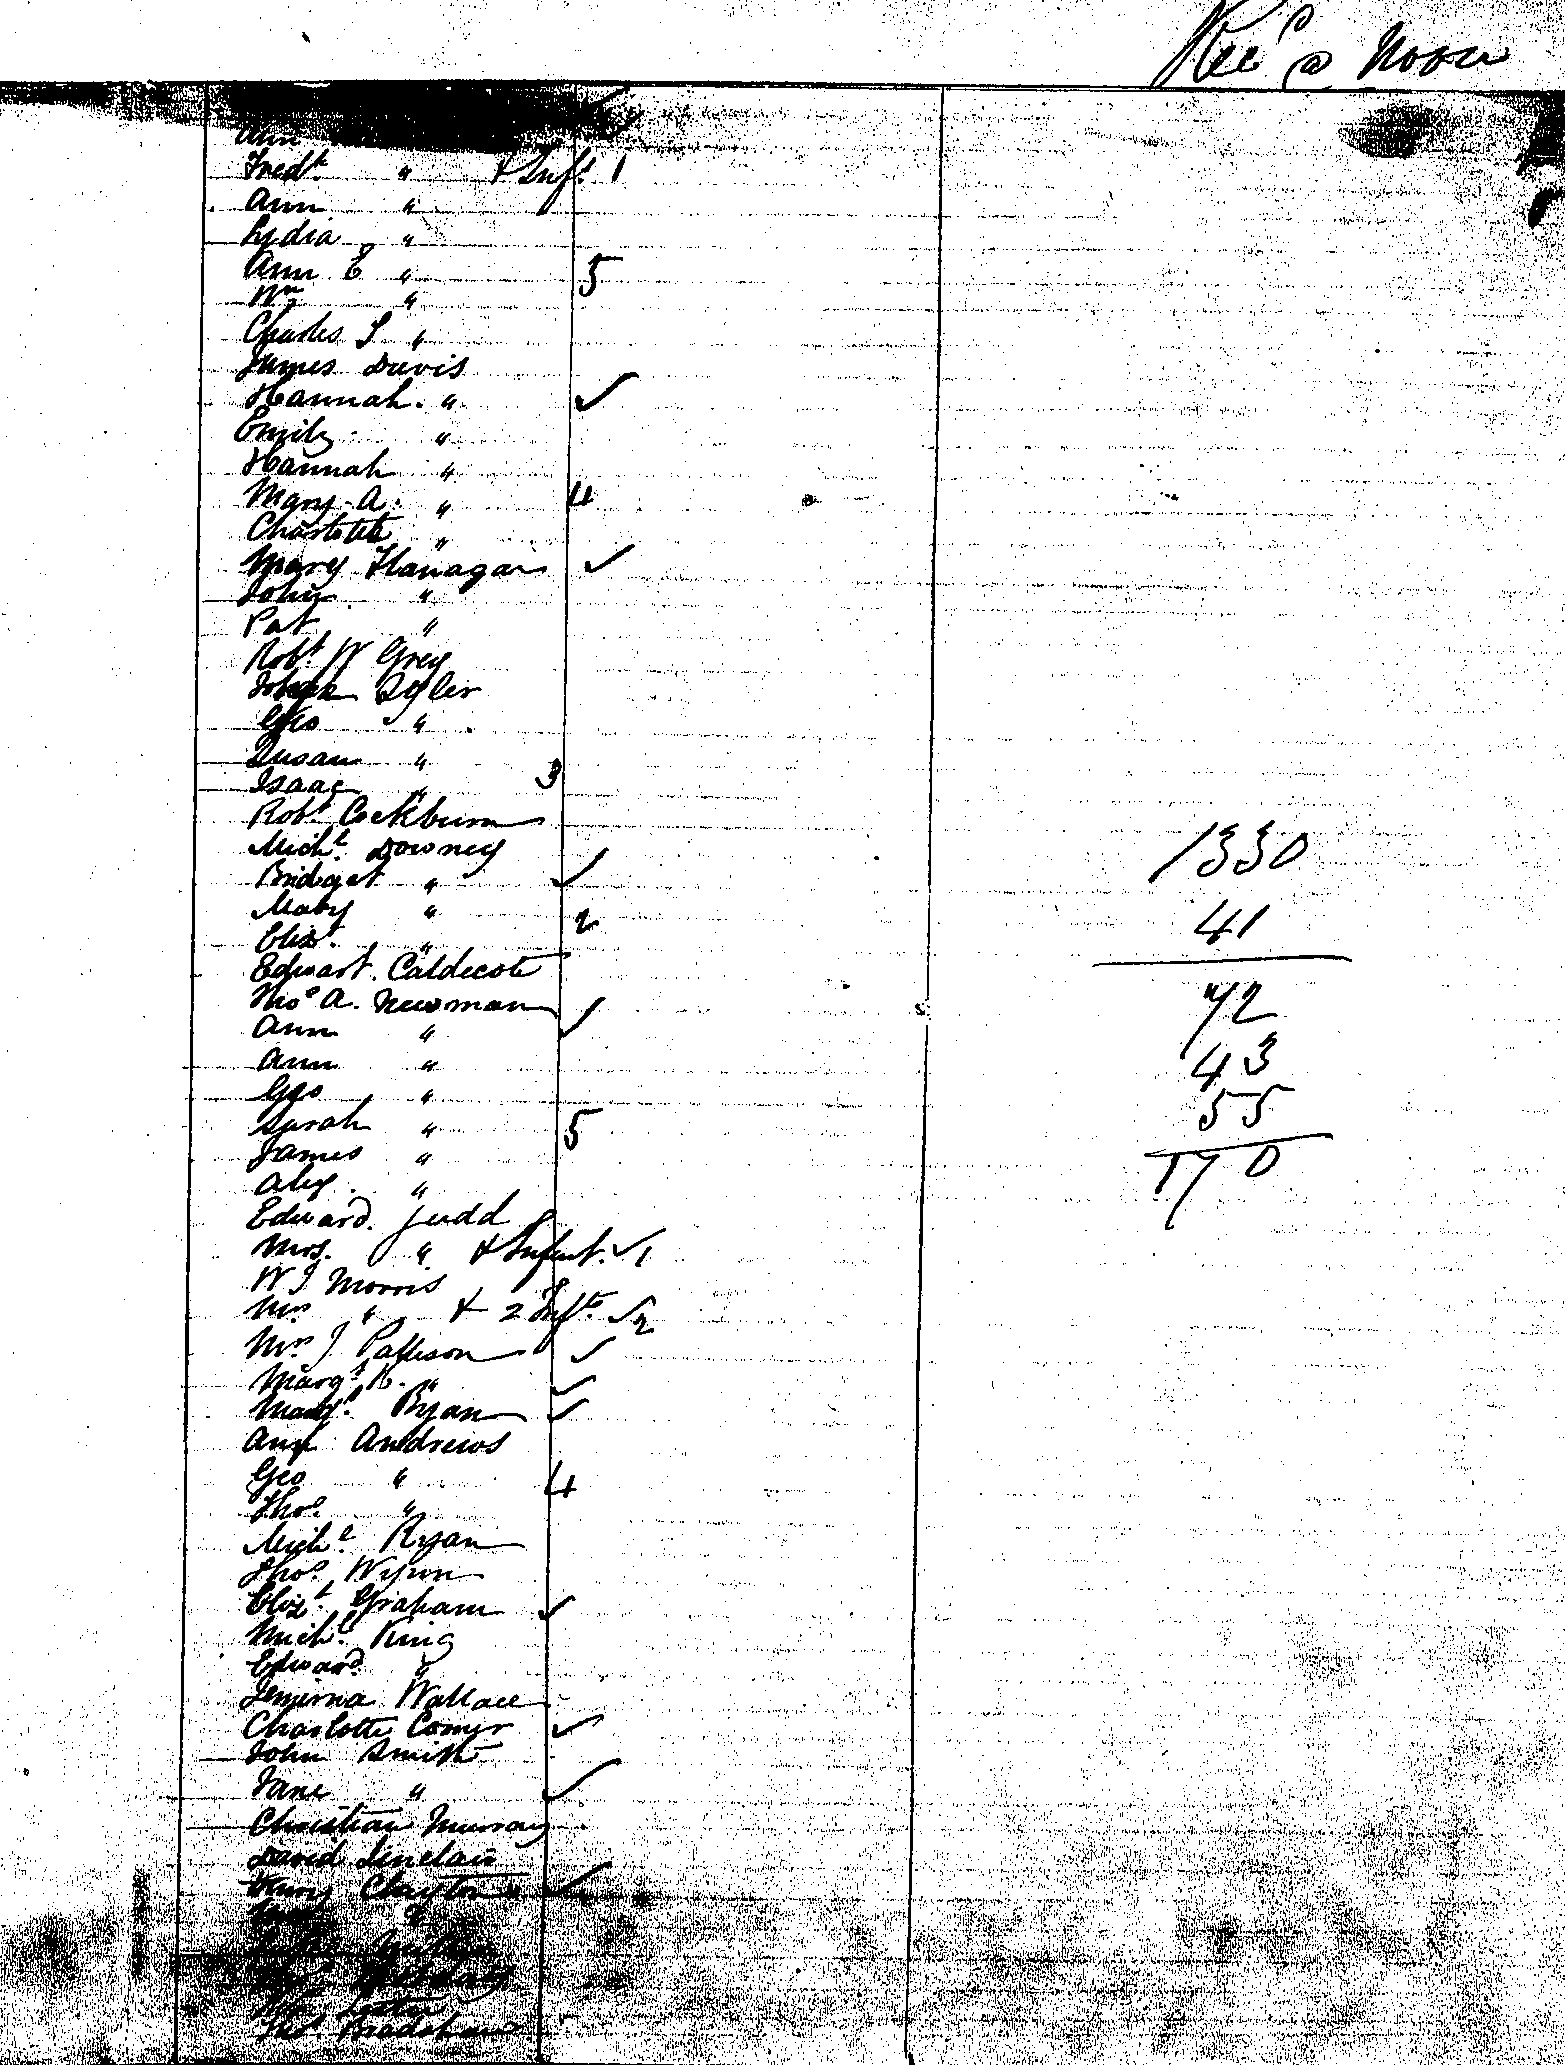 Rec^d @ Noon
Ann
Fred^k " & Inf^t 1
Ann "
Lydia "
Ann E " 5
W^m "
Charles S "
James Davis
Hannah " ✓
Emily "
Hannah "
Mary A. " 4
Charlotte "
Mary Flanagan ✓
John "
Pat "
Rob^t W Grey
Tyler
Geo "
Susan "
Isaac " 3
Rob^t Cockburn
Mich^l Downey
Bridget " ✓
Mary " 2
Eliz^t "
Edward Caldecote
Tho^s A. Newman
Ann " ✓
Ann "
Geo "
Sarah " 5
James "
Alex "
Edward Judd
Mrs. " & Infant. ✓ 1
W J Morris
Mrs " & 2 Inf^ts ✓ 2
Mrs J Patteson ✓
Marg^t R. " ✓
Ryan ✓
Ann Andrews
Geo " 4
Tho^s "
Mich^l Ryan
Tho^s
Eliz^t Graham ✓
Mich^l King
Edward "
Jemima Wallace
Charlotte Comyr ✓
John Smith
Jane " ✓
Christian Murray
David Sinclair
Clayton ✓
Tho^s Bradshaw
1330
41
72
43
55
170